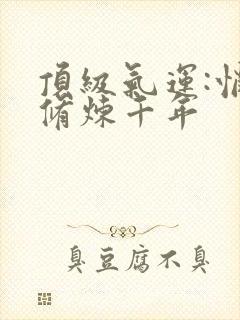 頂級氣運:悄
脩煉千年
臭豆腐不臭